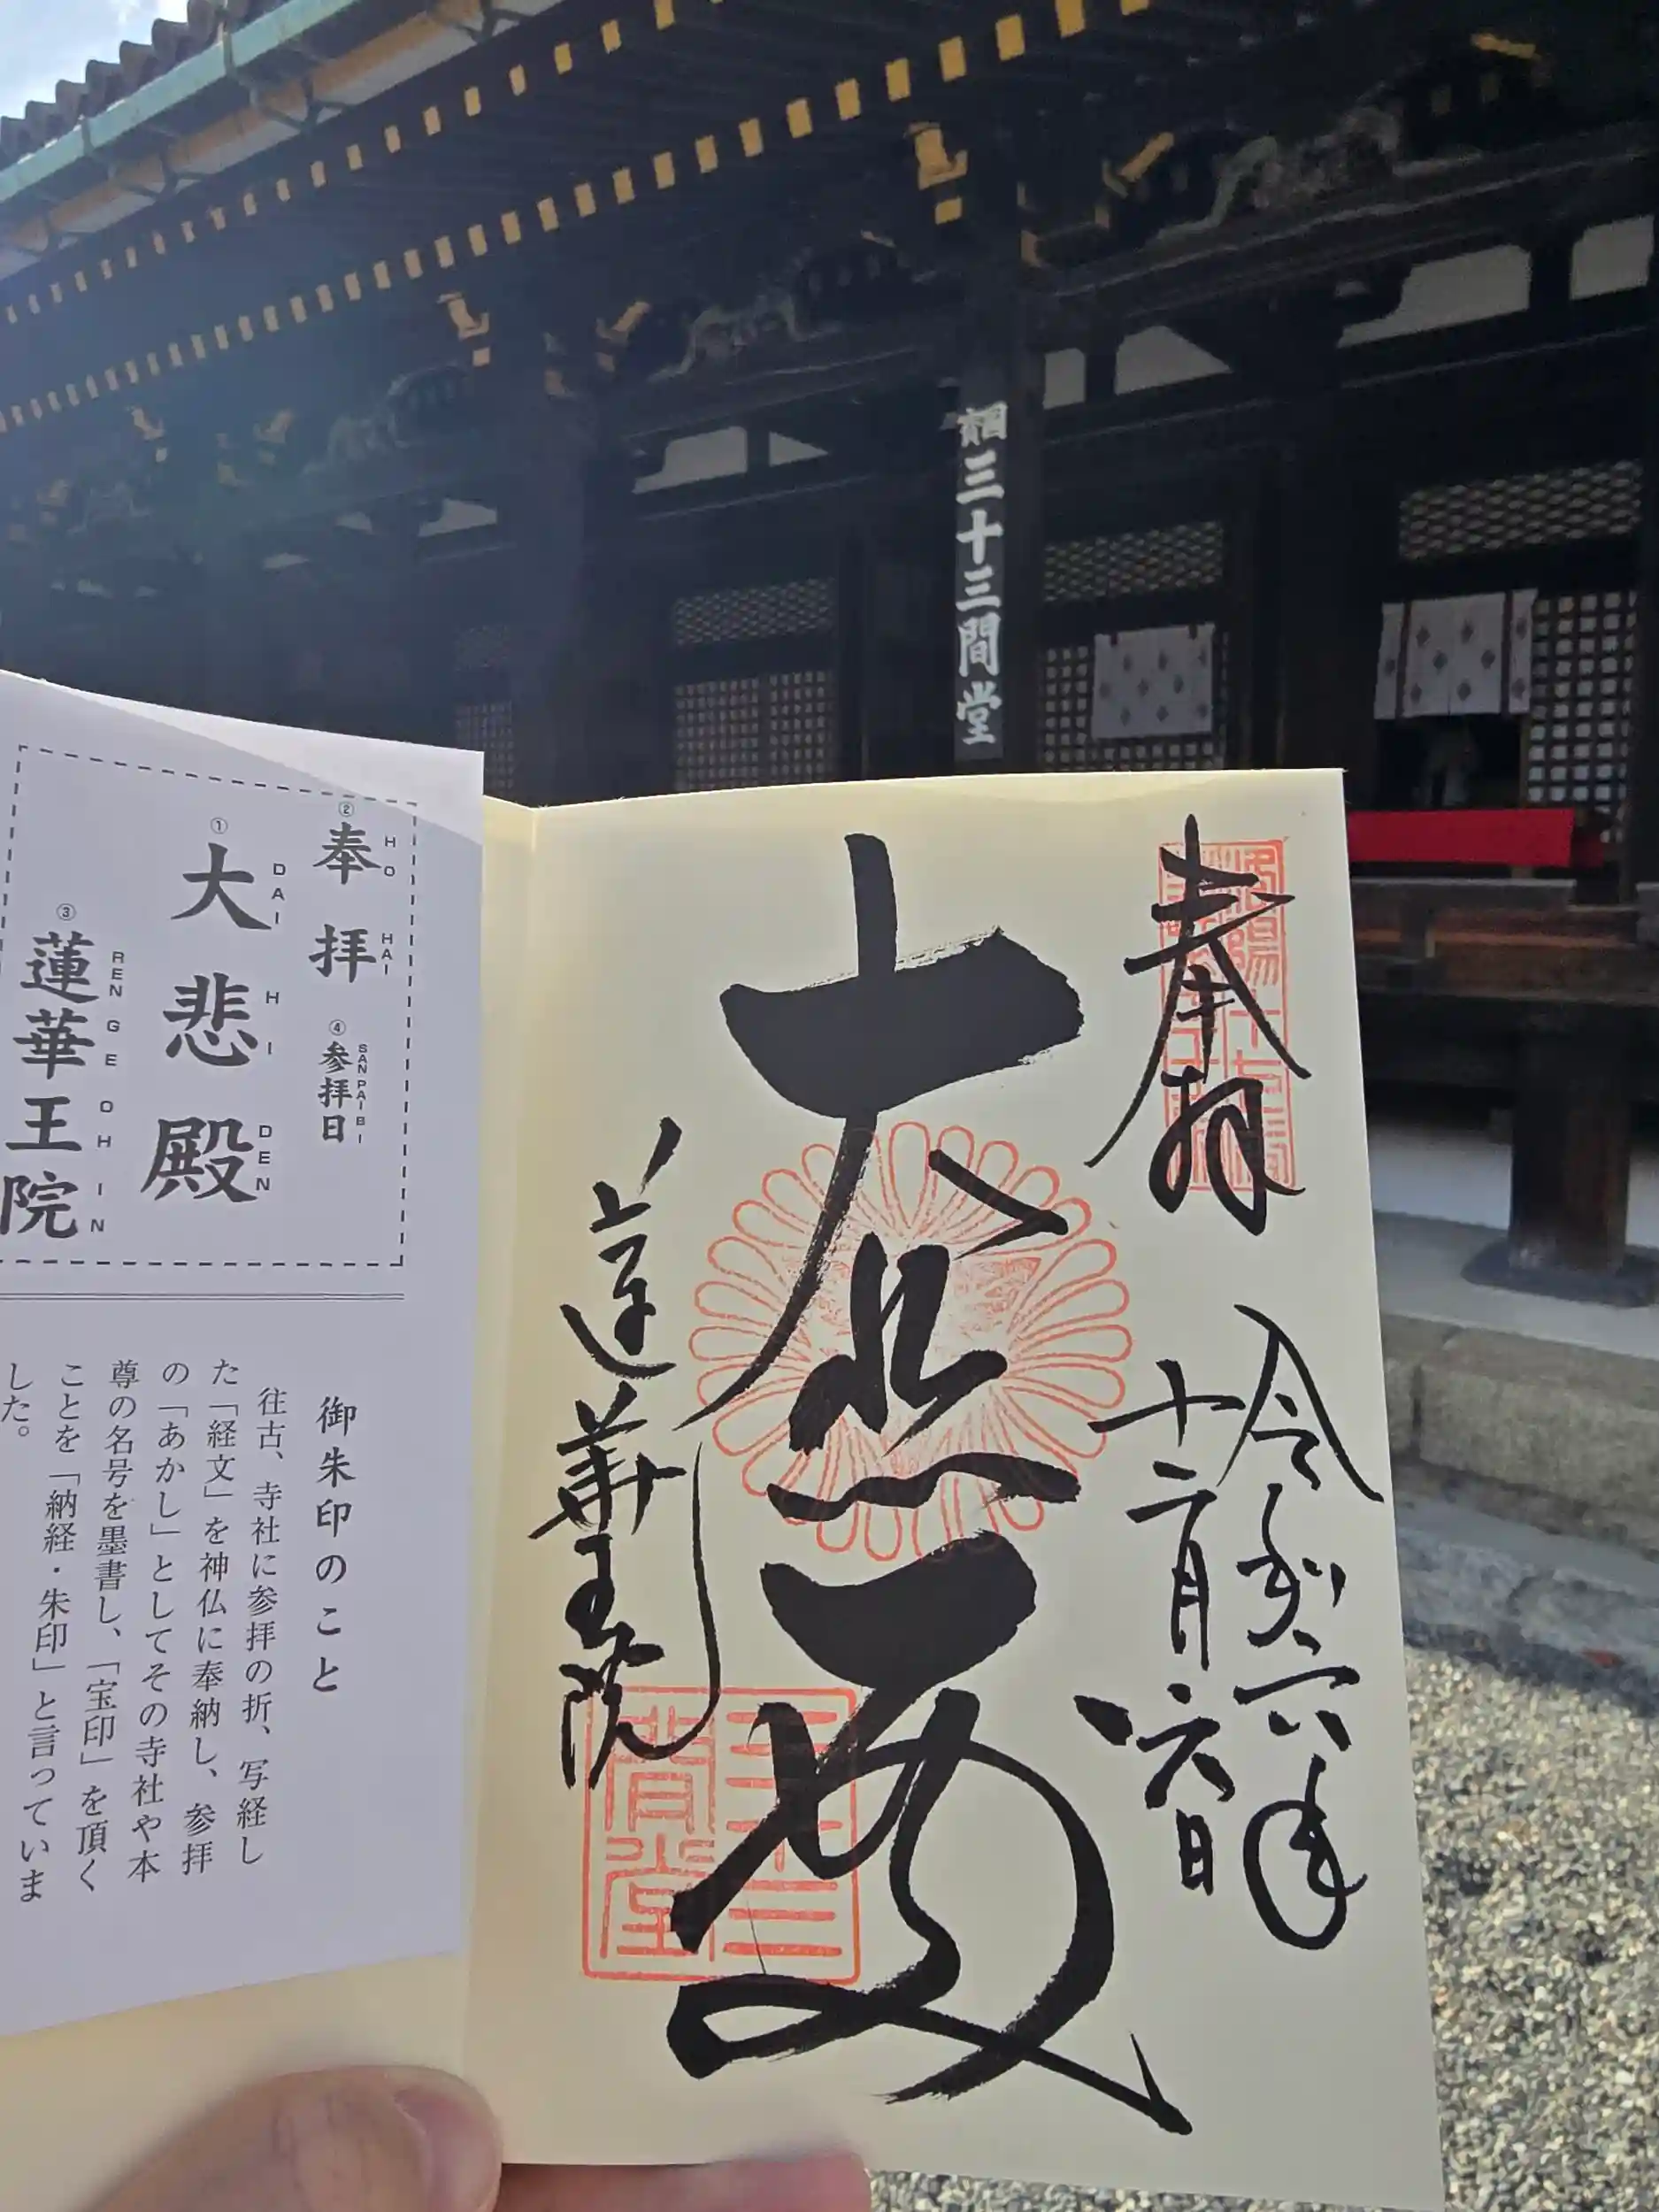 國寳 三十三間堂
② 奉拝
HO HAI
④ 参拝日
SAN PAI BI
① 大悲殿
DAI HI DEN
③ 蓮華王院
REN GE OH IN
御朱印のこと
往古、寺社に参拝の折、写経し
た「経文」を神仏に奉納し、参拝
の「あかし」としてその寺社や本
尊の名号を墨書し、「宝印」を頂く
ことを「納経・朱印」と言っていま
した。
奉拝
令和六年
十二月六日
大悲殿
蓮華王院
三十三間堂